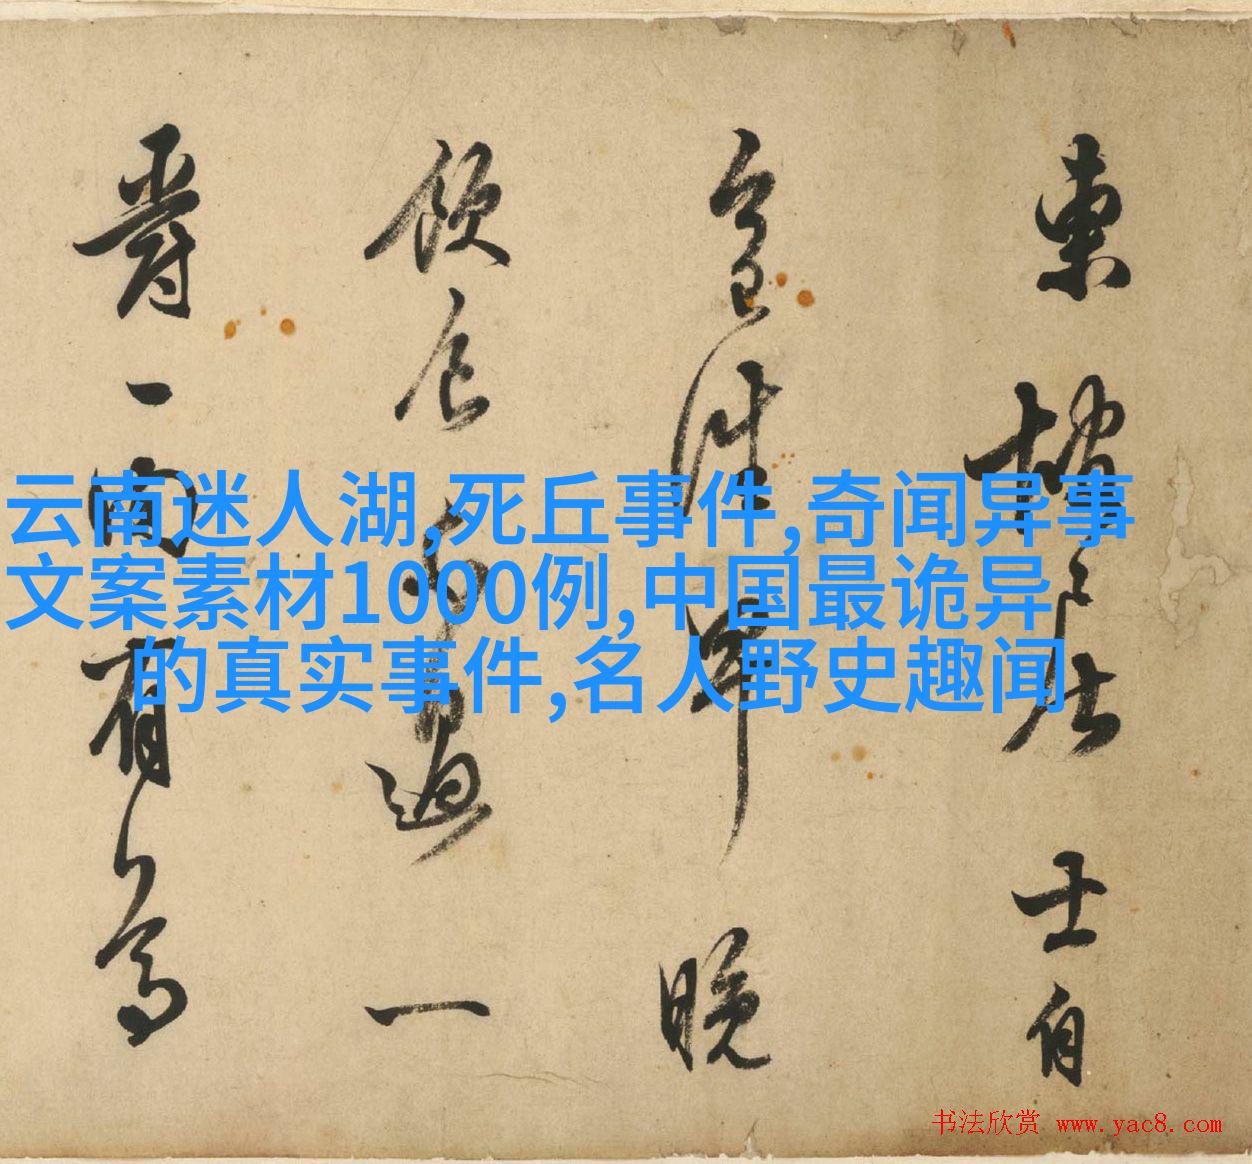 云南迷人湖,死丘事件,奇闻异事
文案素材1000例,中国最诡异
的真实事件,名人野史趣闻
東坡居士自
今日往早晚
飲食不過一
爵一肉有
书法欣赏 www.yac8.com